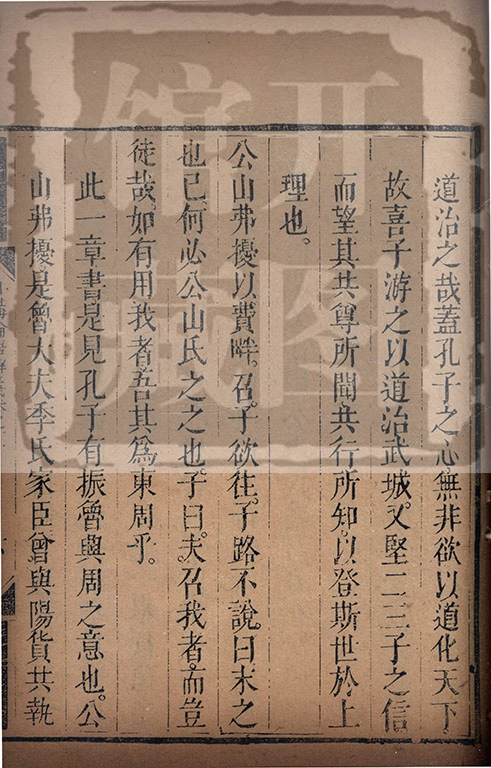 道治之哉蓋孔子之心無非欲以道化天下
故喜子游之以道治武城又堅二三子之信
而望其共尊所聞共行所知以登斯世於上
理也。
公山弗擾以費畔。召。子欲往。子路不說。曰末之
也已何必公山氏之之也。子曰。夫召我者。而豈
徒哉。如有用我者。吾其爲東周乎。
此一章書是見孔子有振魯與周之意也。公
山弗擾是魯大夫季氏家臣曾與陽貨共執
開圖
館藏